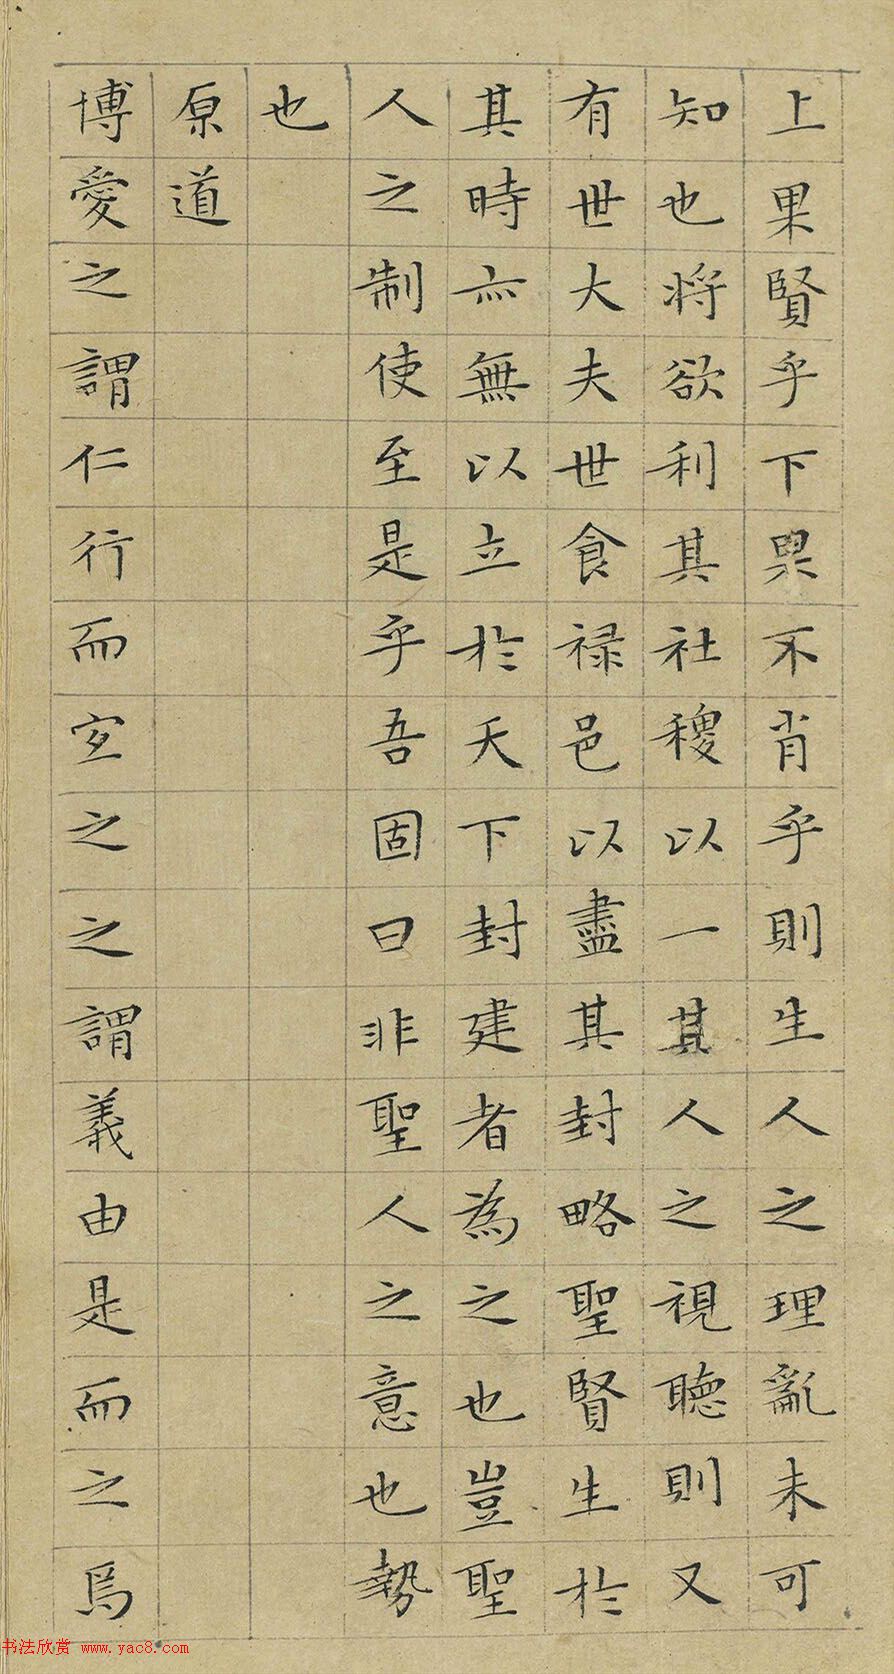 上果賢乎下果不肖乎則生人之理亂未可
知也將欲利其社稷以一其人之視聽則又
有世大夫世食禄邑以盡其封略聖賢生於
其時亦無以立於天下封建者為之也豈聖
人之制使至是乎吾固曰非聖人之意也勢
也
原道
博愛之謂仁行而宜之之謂義由是而之焉
书法欣赏 www.yac8.com